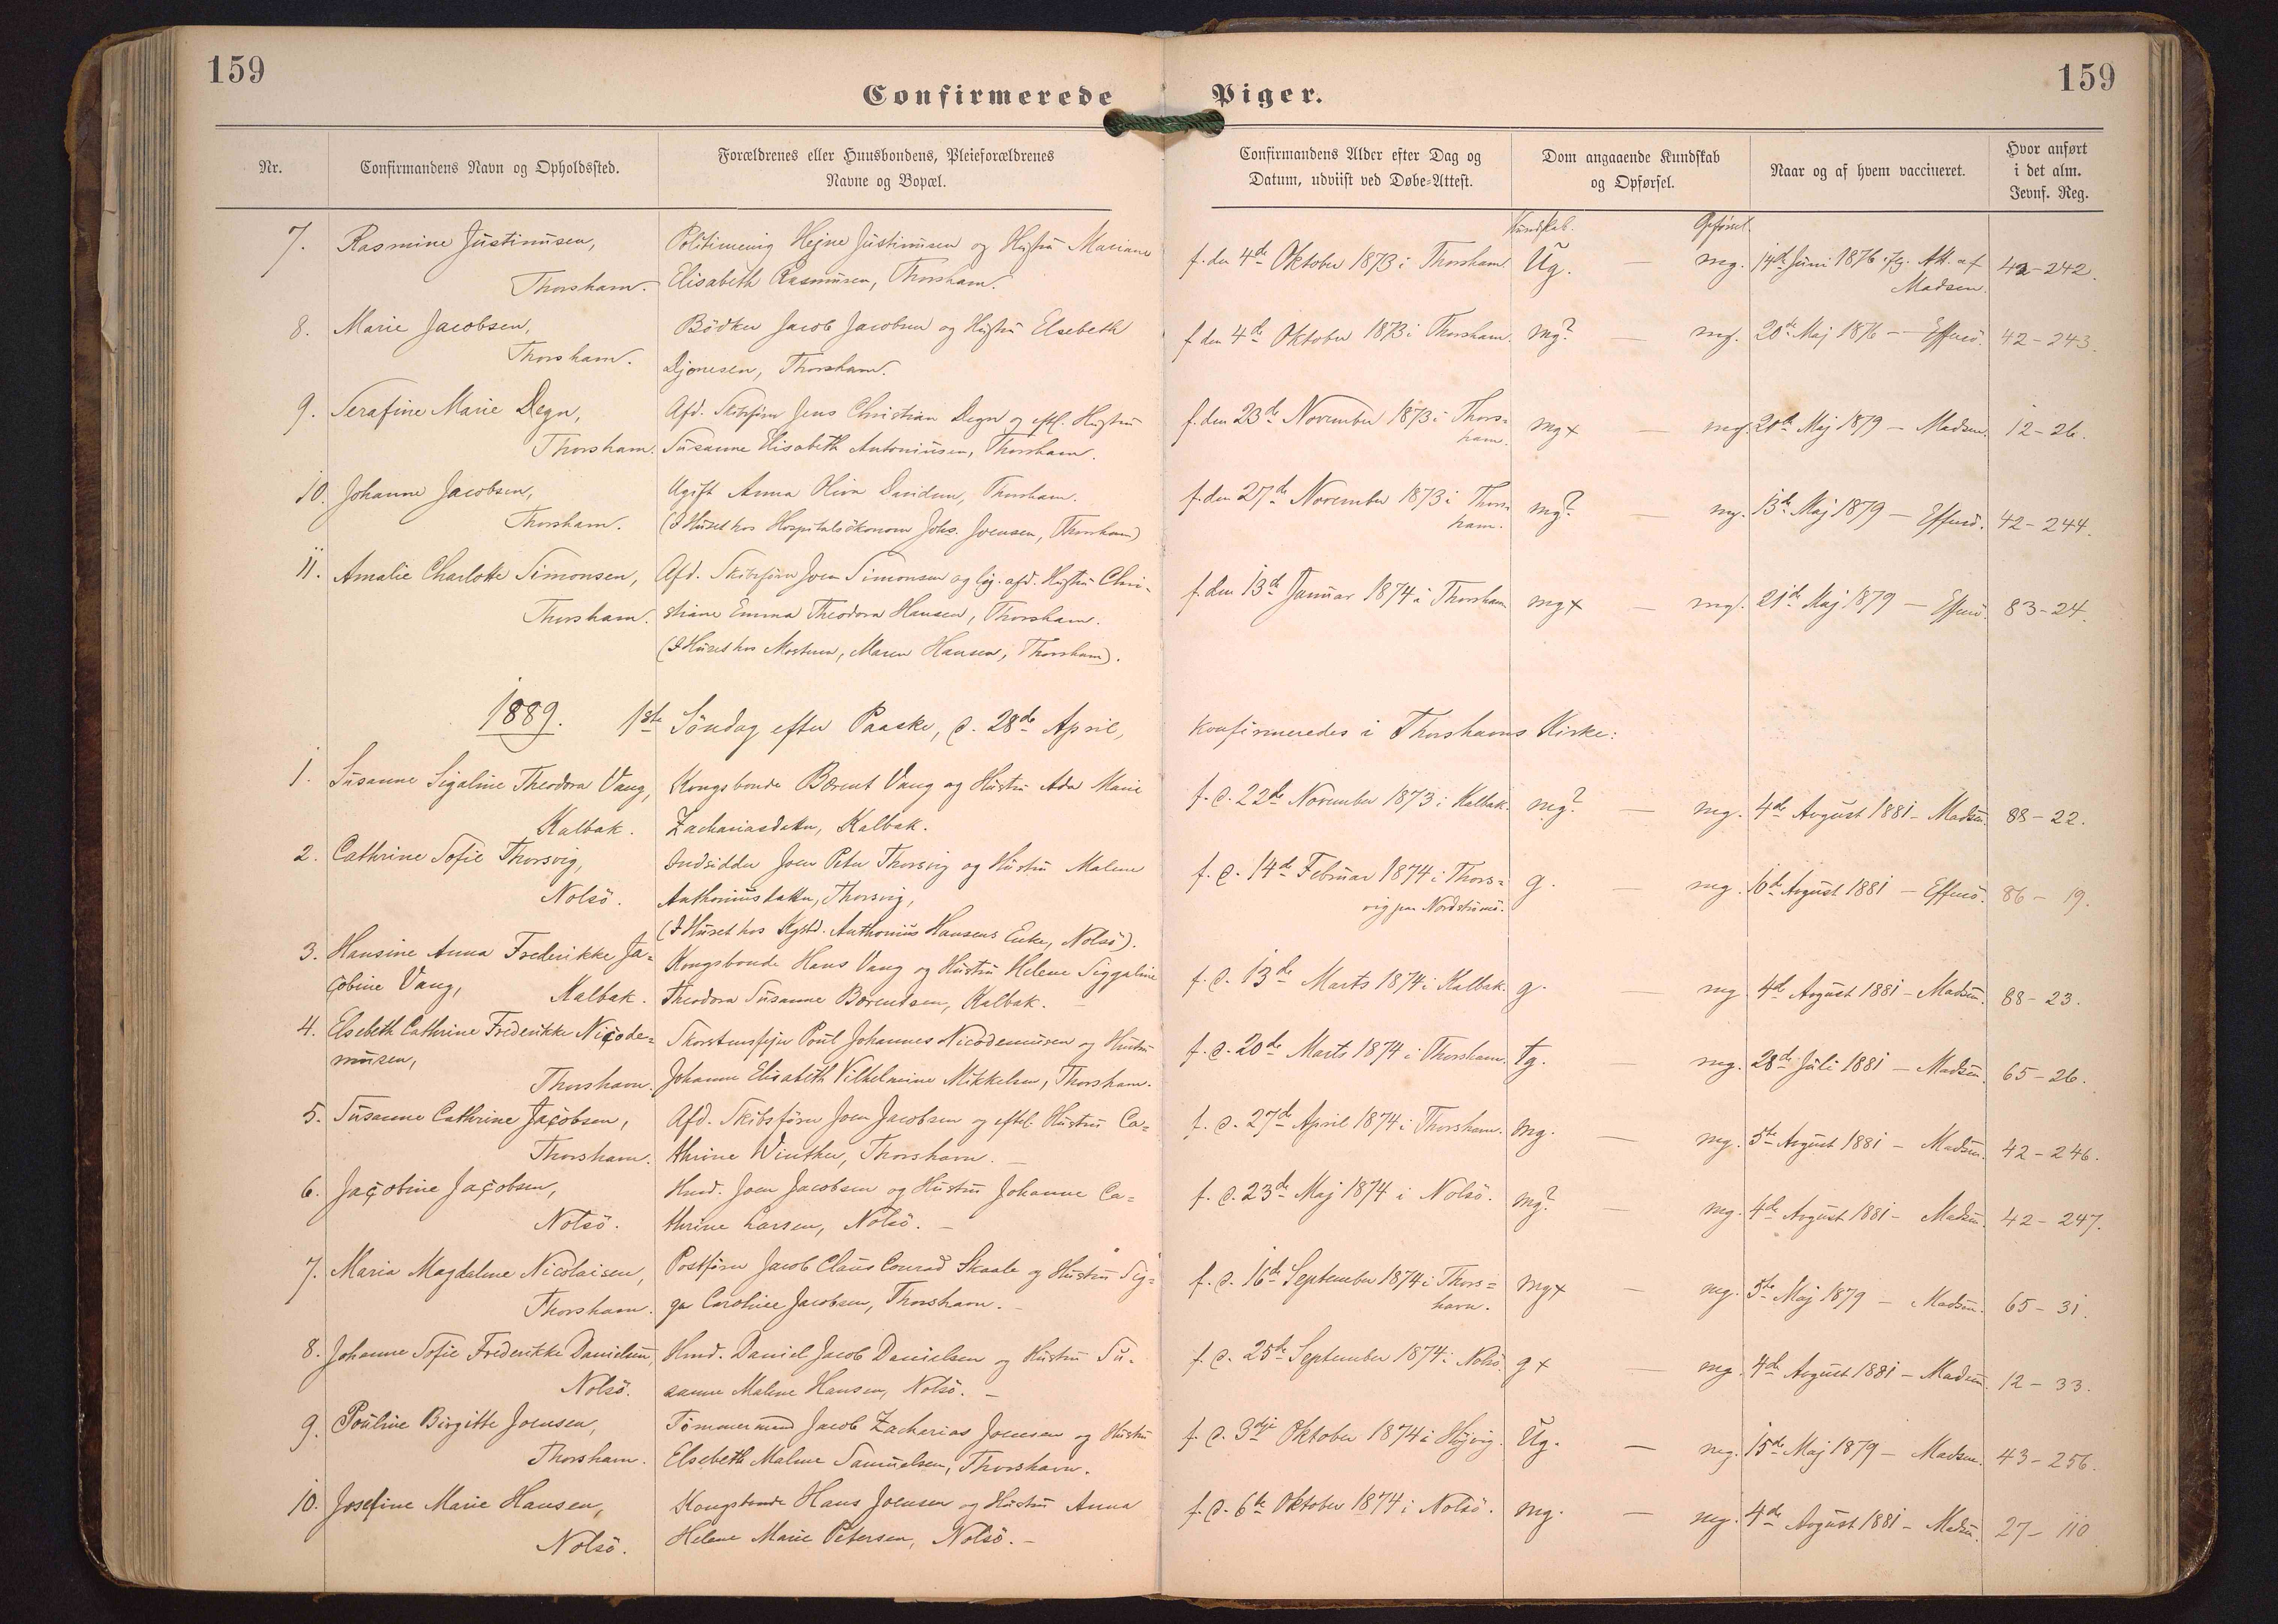 159
159
Confirmerede Piger.
Nr.
Confirmandens Navn og Opholdssted.
Forældrenes eller Huusbondens, Pleieforældrenes
Navne og Bopæl.
Confirmandens Alder efter Dag og
Datum, udviist ved Døbe-Attest.
Dom angaaende Kundskab
og Opførsel.
Naar og af hvem vaccineret.
Hvor anført
i det alm.
Jevnf. Reg.
Kundskab. Opførsel.
7. Rasmine Justinusen, Politimenig Hejne Justinusen og Hustru Mariane f. den 4de Oktober 1873 i Thorshavn. Ug. — mg. 14de Juni 1876 ifg. Att. af 42-242.
Thorshavn. Elisabeth Rasmusen, Thorshavn. Madsen.
8. Marie Jacobsen, Bödker Jacob Jacobsen og Hustru Elsebeth f. den 4de Oktober 1873 i Thorshavn. mg? — mg. 20de Maj 1876 — Effersö. 42-243.
Thorshavn. Djonesen, Thorshavn.
9. Serafine Marie Degn, Afd. Skibsförer Jens Christian Degn og eftl. Hustru f. den 23de November 1873 i Thors= mg+ — mg. 20de Maj 1879 — Madsen. 12-26.
Thorshavn. Susanne Elisabeth Antoniusen, Thorshavn. havn.
10. Johanne Jacobsen, Ugift Anna Oliva Davidsen, Thorshavn. f. den 27de November 1873 i Thors= mg? — mg. 13de Maj 1879 — Effersö. 42-244.
Thorshavn. (I Huset hos Hospitalsökonom Johs. Joensen, Thorshavn) havn.
11. Amalie Charlotte Simonsen, Afd. Skibsförer Joen Simonsen og lig. afd. Hustru Chri- f. den 13de Januar 1874 i Thorshavn mg+ — mg. 21de Maj 1879 — Effersö. 83-24.
Thorshavn. stiane Emma Theodora Hansen, Thorshavn.
(I Huset hos Mosteren, Maren Hansen, Thorshavn).
1889. 1ste Söndag efter Paaske, d. 28de April, konfirmeredes i Thorshavns Kirke:
1. Susanne Sigaline Theodora Vang, Kongsbonde Bærent Vang og Hustru Ada Marie f. d. 22de November 1873 i Kalbak. mg? — mg. 4de August 1881 — Madsen. 88-22.
Kalbak. Zachariasdatter, Kalbak.
2. Cathrine Sofie Thorsvig, Indsidder Joen Peter Thorsvig og Hustru Malene f. d. 14de Februar 1874 i Thors= g. — mg. 10de August 1881 — Effersö. 86-19.
Nolsö. Anthoniusdatter, Thorsvig, vig paa Nordströmö.
(I Huset hos Kgsbd. Anthonius Hansens Enke, Nolsö).
3. Hansine Anna Frederikke Ja= Kongsbonde Hans Vang og Hustru Helene Siggaline f. d. 13de Marts 1874 i Kalbak. g. — mg. 4de August 1881 — Madsen. 88-23.
cobine Vang, Kalbak. Theodora Susanne Bærendsen, Kalbak. —
4. Elsebeth Cathrine Frederikke Nicode= Skorstensfejer Poul Johannes Nicodemusen og Hustru f. d. 20de Marts 1874 i Thorshavn. tg. — mg. 28de Juli 1881 — Madsen. 65-26.
musen, Thorshavn. Johanne Elisabeth Vilhelmine Mikkelsen, Thorshavn.
5. Susanne Cathrine Jacobsen, Afd. Skibsförer Joen Jacobsen og eftl. Hustru Ca= f. d. 27de April 1874 i Thorshavn. mg. — mg. 5te August 1881 — Madsen. 42-246.
Thorshavn. thrine Winther, Thorshavn. —
6. Jacobine Jacobsen, Hmd. Joen Jacobsen og Hustru Johanne Ca= f. d. 23de Maj 1874 i Nolsö. mg? — mg. 4de August 1881 — Madsen. 42-247.
Nolsö. thrine Larsen, Nolsö. —
7. Maria Magdalene Nicolaisen, Postförer Jacob Claus Conrad Skaale og Hustru Sig= f. d. 16de September 1874 i Thors= mg+ — mg. 5te Maj 1879 — Madsen. 65-31.
Thorshavn. ga Caroline Jacobsen, Thorshavn. — havn.
8. Johanne Sofie Frederikke Danielsen, Hmd. Daniel Jacob Danielsen og Hustru Su- f. d. 25de September 1874 i Nolsö. g+ — mg. 4de August 1881 — Madsen. 12-33.
Nolsö. sanne Malene Hansen, Nolsö. —
9. Pouline Birgitte Joensen, Tömmermand Jacob Zacharias Joensen og Hustru f. d. 3dje Oktober 1874 i Höjvig. Ug. — mg. 15de Maj 1879 — Madsen. 43-256.
Thorshavn. Elsebeth Malene Samuelsen, Thorshavn.
10. Josefine Marie Hansen, Kongsbonde Hans Joensen og Hustru Anna f. d. 6te Oktober 1874 i Nolsö. mg. — mg. 4de August 1881 — Madsen. 27-110
Nolsö. Helene Marie Petersen, Nolsö. —